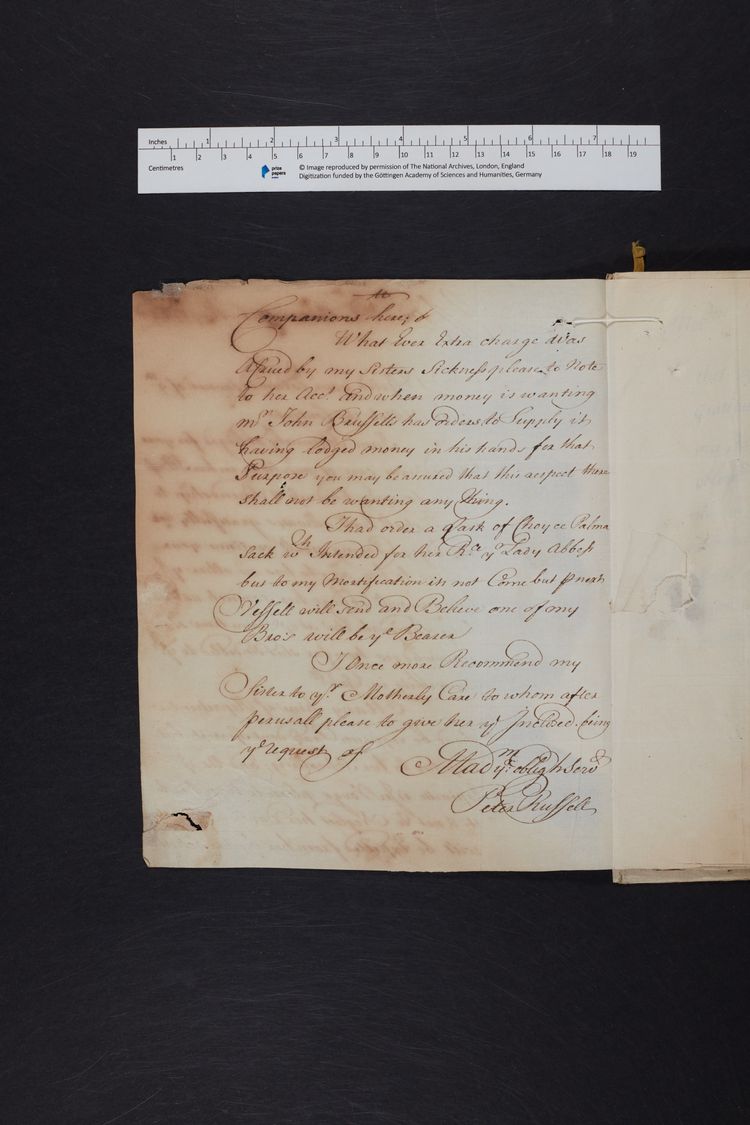 Inches 1 2 3 4 5 6 7
Centimetres 1 2 3 4 5 6 7 8 9 10 11 12 13 14 15 16 17 18 19
prize papers
© Image reproduced by permission of The National Archives, London, England
Digitization funded by the Göttingen Academy of Sciences and Humanities, Germany
Companions here; &
What Ever Extra charge was
by my Sisters Sickness please to Note
to her Acct. and when money is wanting
mr. John Brussells has orders to Supply it
having lodged money in his hands for that
Purpose you may be assured that this respect there
shall not be wanting any thing.
I had order a Cask of Choyce Palma
Sack wch Intended for her & ye Lady Abbess
but to my Mortification its not Come but p next
Vessell will send and Believe one of my
Bro:s will be ye Bearer
I Once more Recommend my
Sister to yr. Motherly Care to whom after
perusall please to give her ye Inclosed. being
ye request of
Madm. yr. obligd Servt
Peter Russell